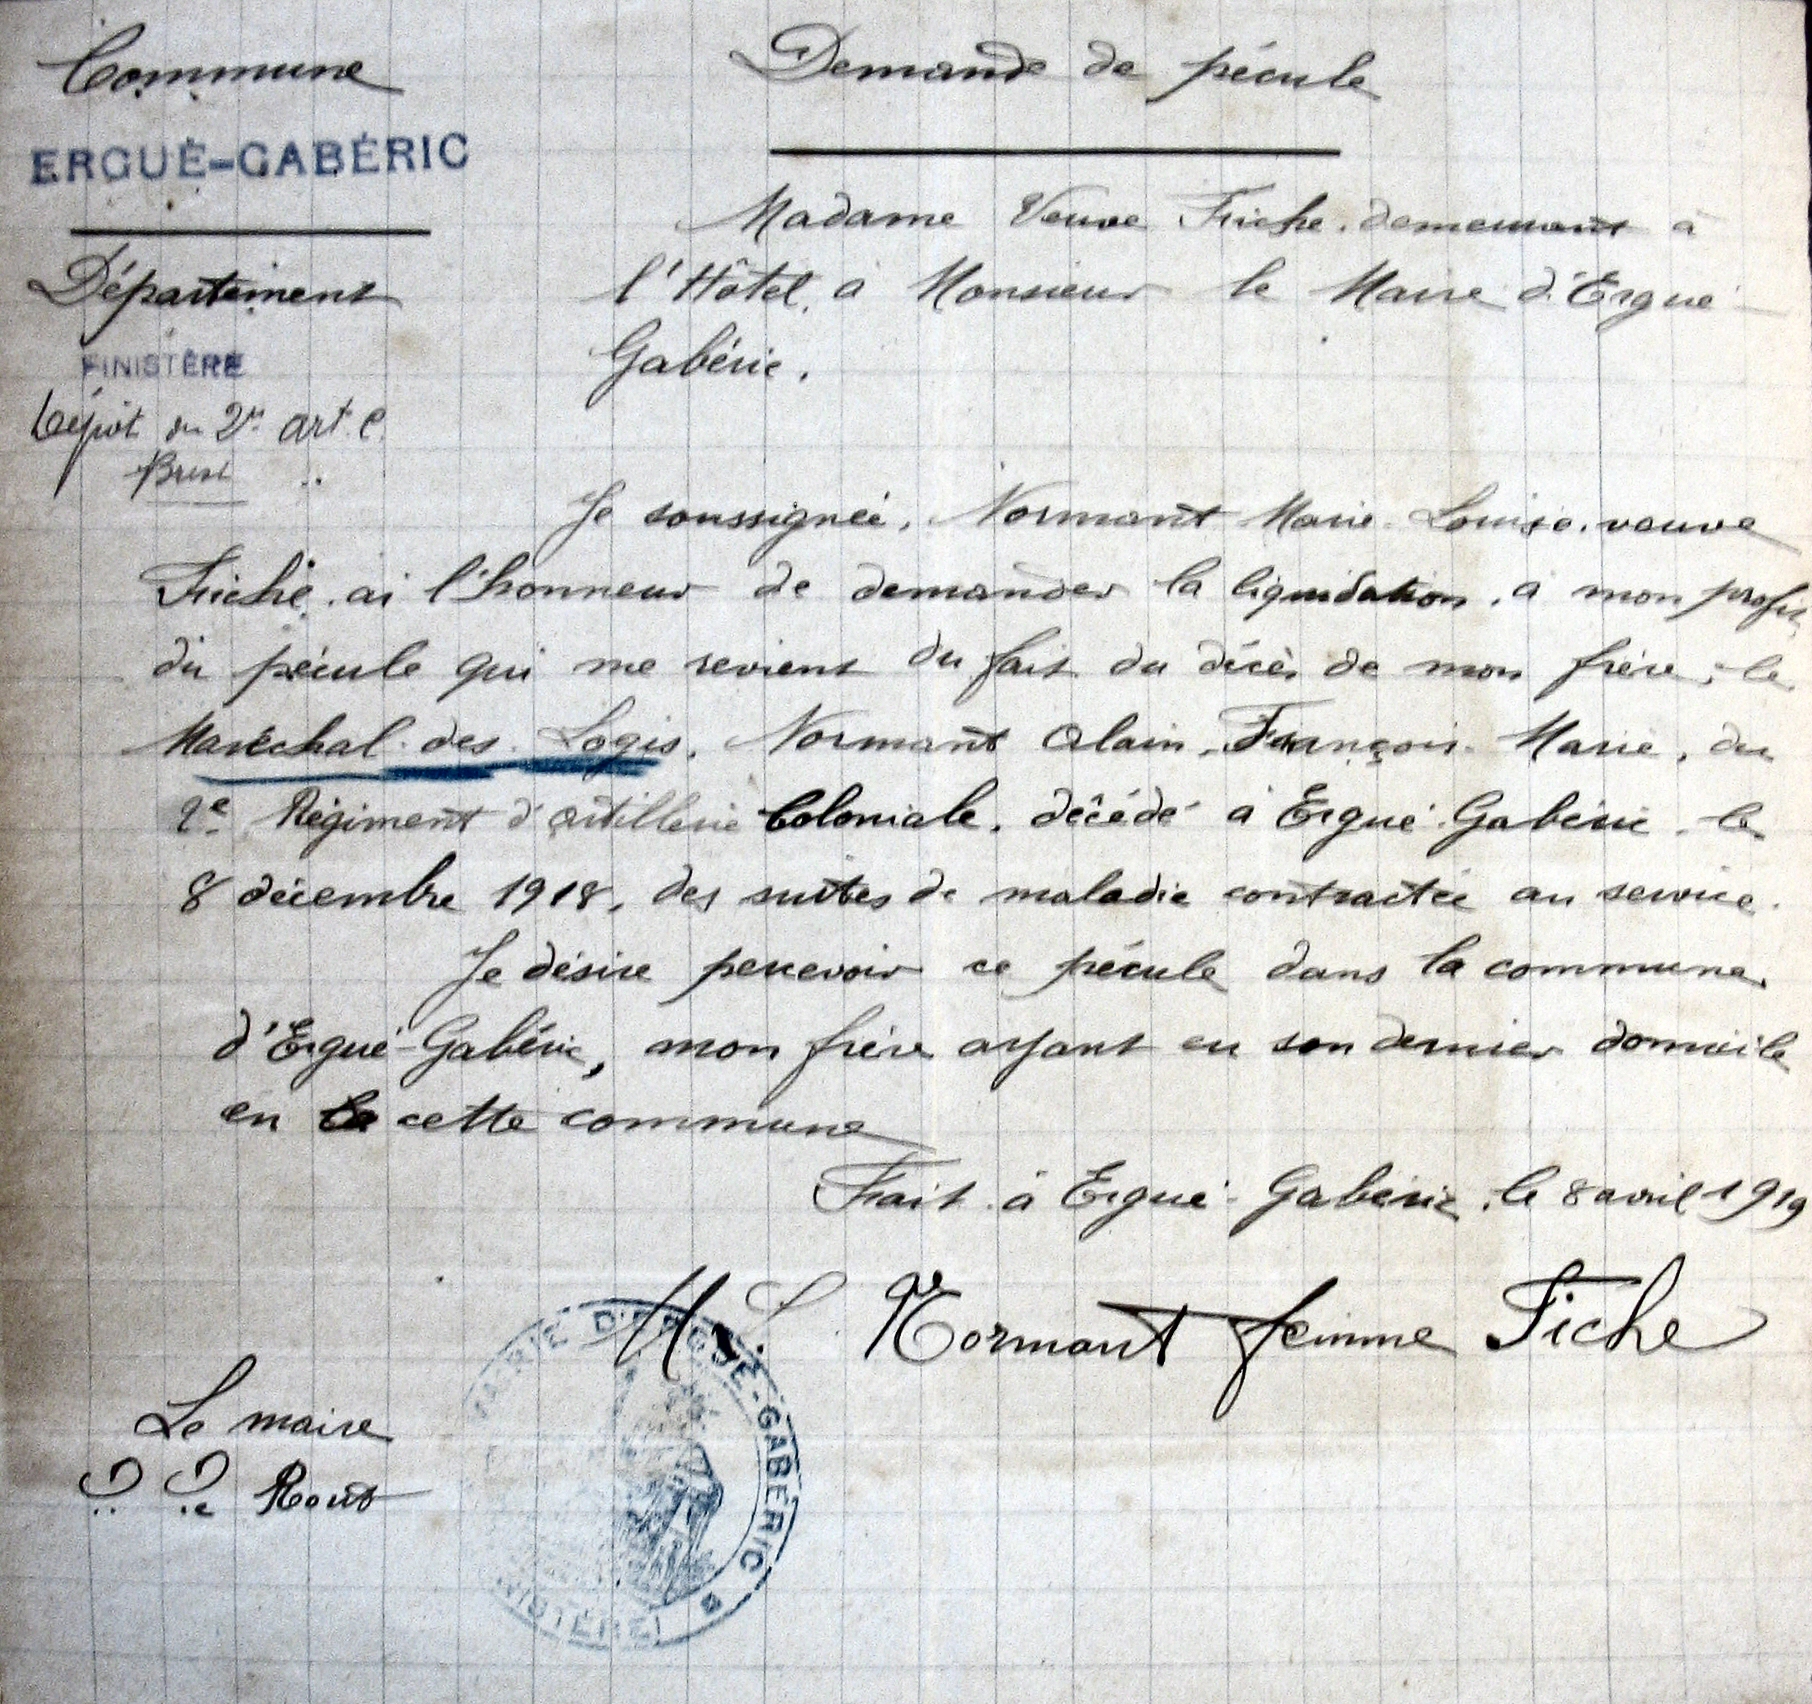 Commune
ERGUÉ-GABÉRIC
Département
FINISTÈRE
Dépôt du 2me Art. C.
Brest
Demande de pécule
Madame Veuve Friche, demeurant à
l'Hôtel, à Monsieur le Maire d'Ergué-
Gabéric.
Je soussignée, Normant Marie-Louise, veuve
Friche, ai l'honneur de demander la liquidation, à mon profit
du pécule qui me revient du fait du décès de mon frère, le
Maréchal-des-Logis, Normant Alain-François-Marie, du
2e Régiment d'Artillerie Coloniale, décédé à Ergué-Gabéric, le
8 décembre 1918, des suites de maladie contractée au service.
Je désire percevoir ce pécule dans la commune
d'Ergué-Gabéric, mon frère ayant eu son dernier domicile
en cette commune
Fait à Ergué-Gabéric, le 8 avril 1919
M. L. Normant femme Fiche
Le maire
MAIRIE D'ERGUÉ-GABÉRIC
(FINISTÈRE)